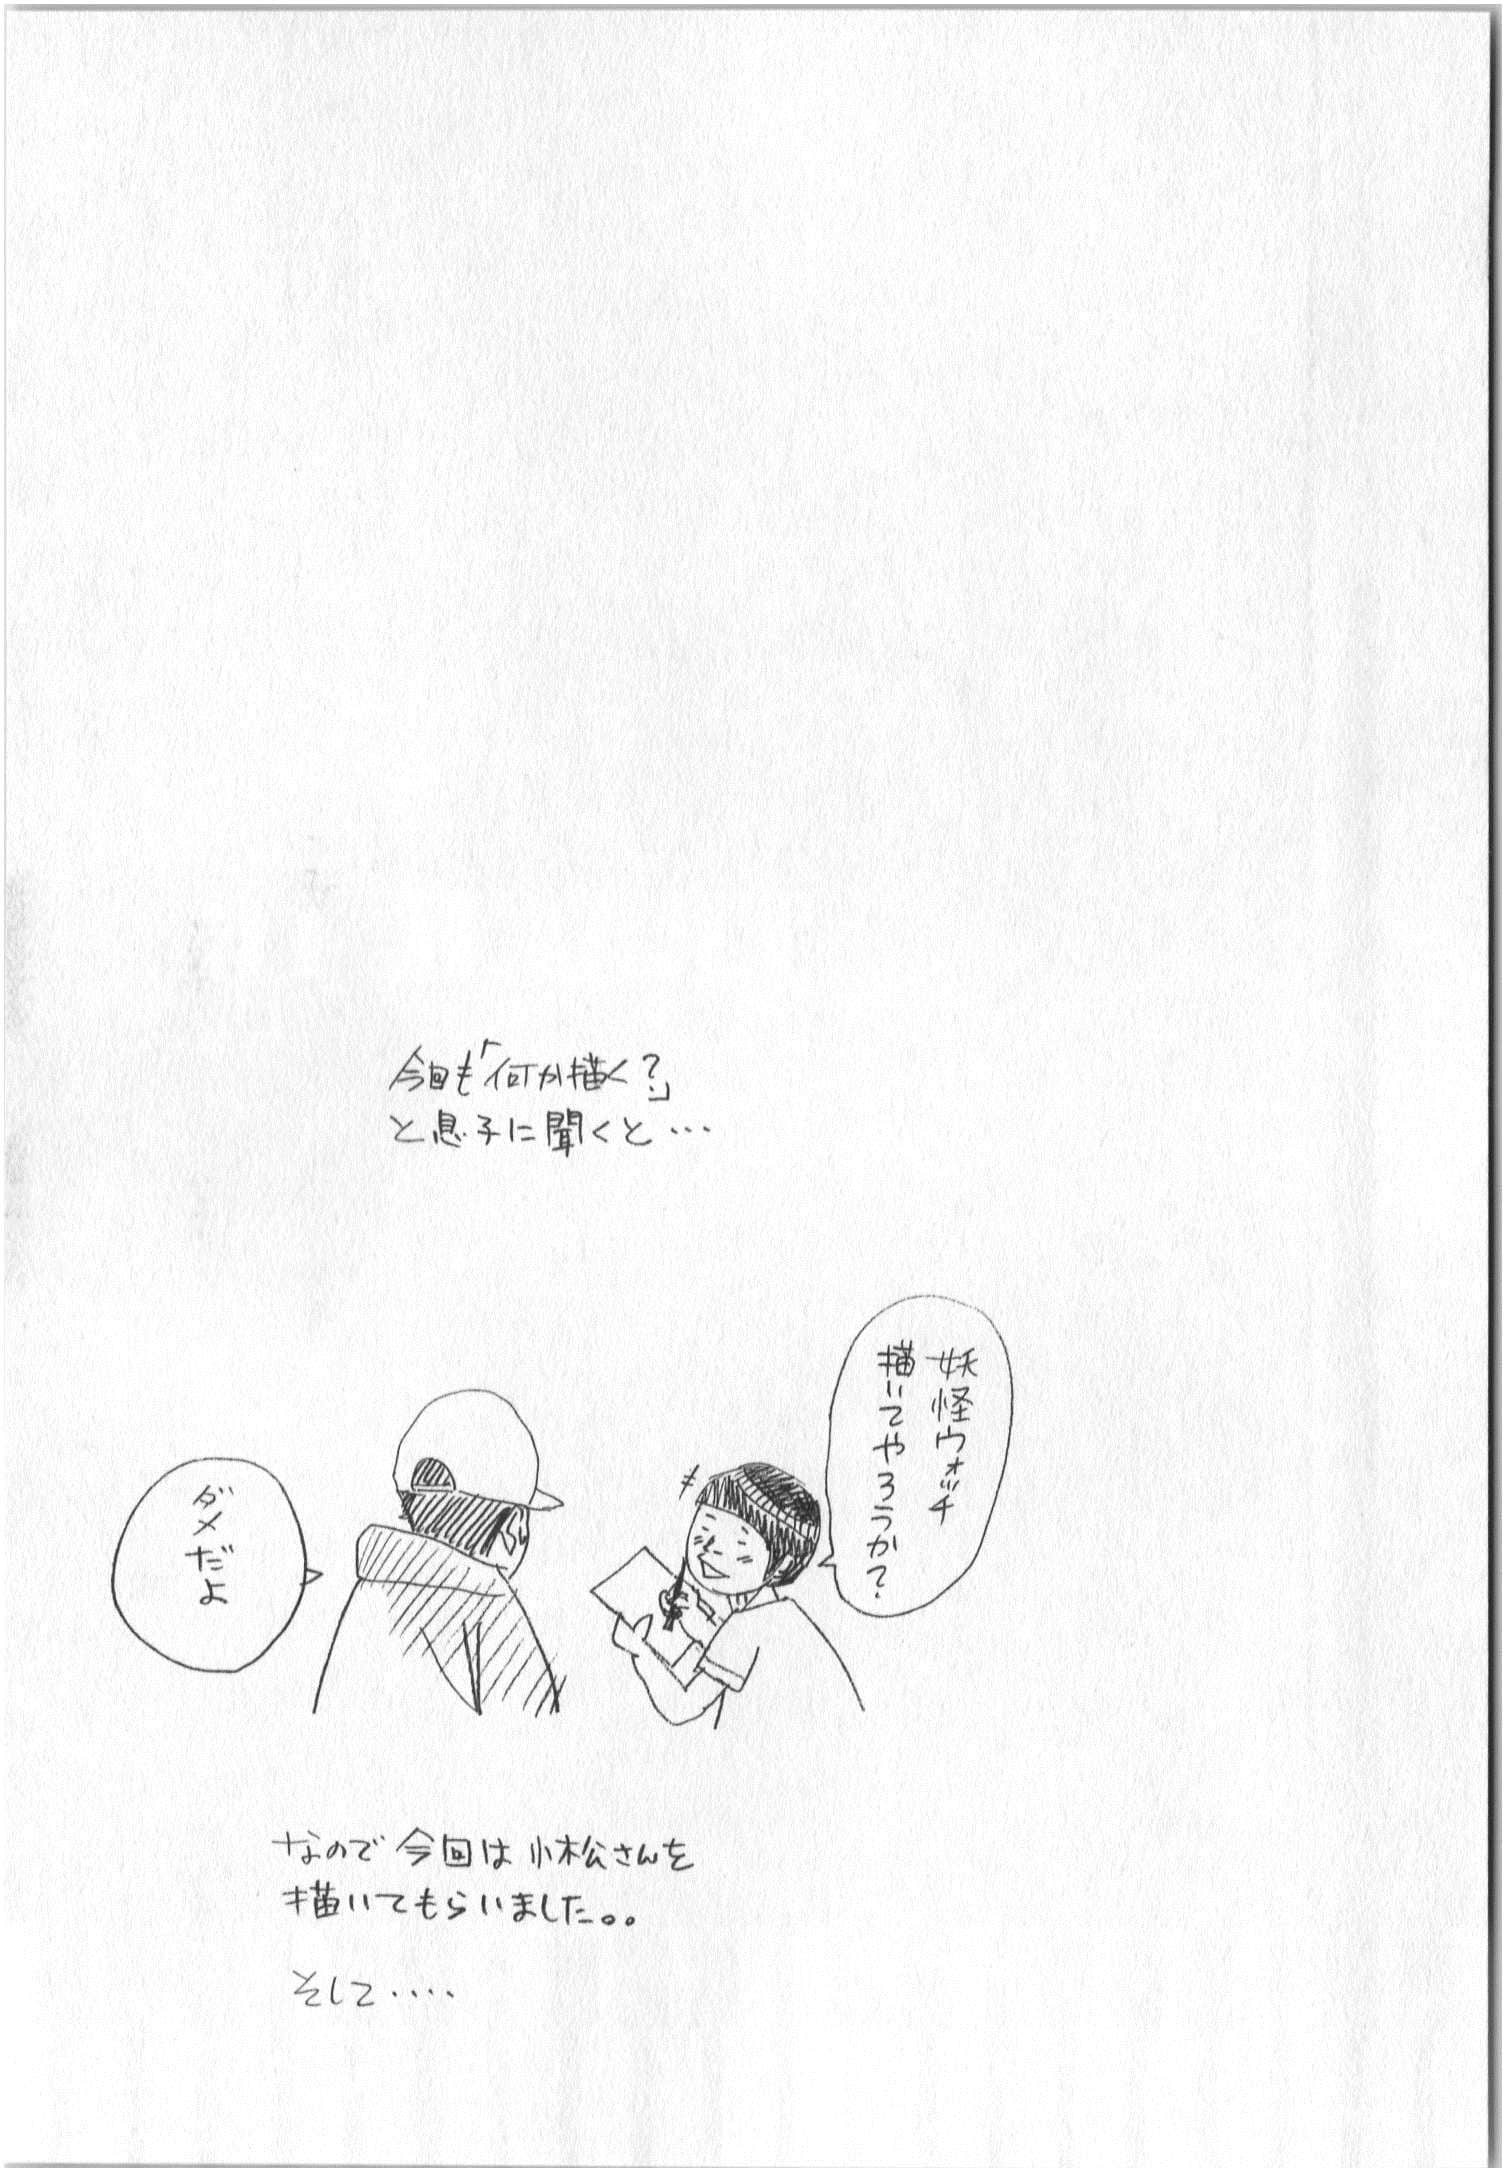 今回も「何か描く？」
と息子に聞くと…
妖怪ウォッチ
描いてやろうか？
ダメだよ
なので今回は小松さんを
描いてもらいました。。
そして‥‥